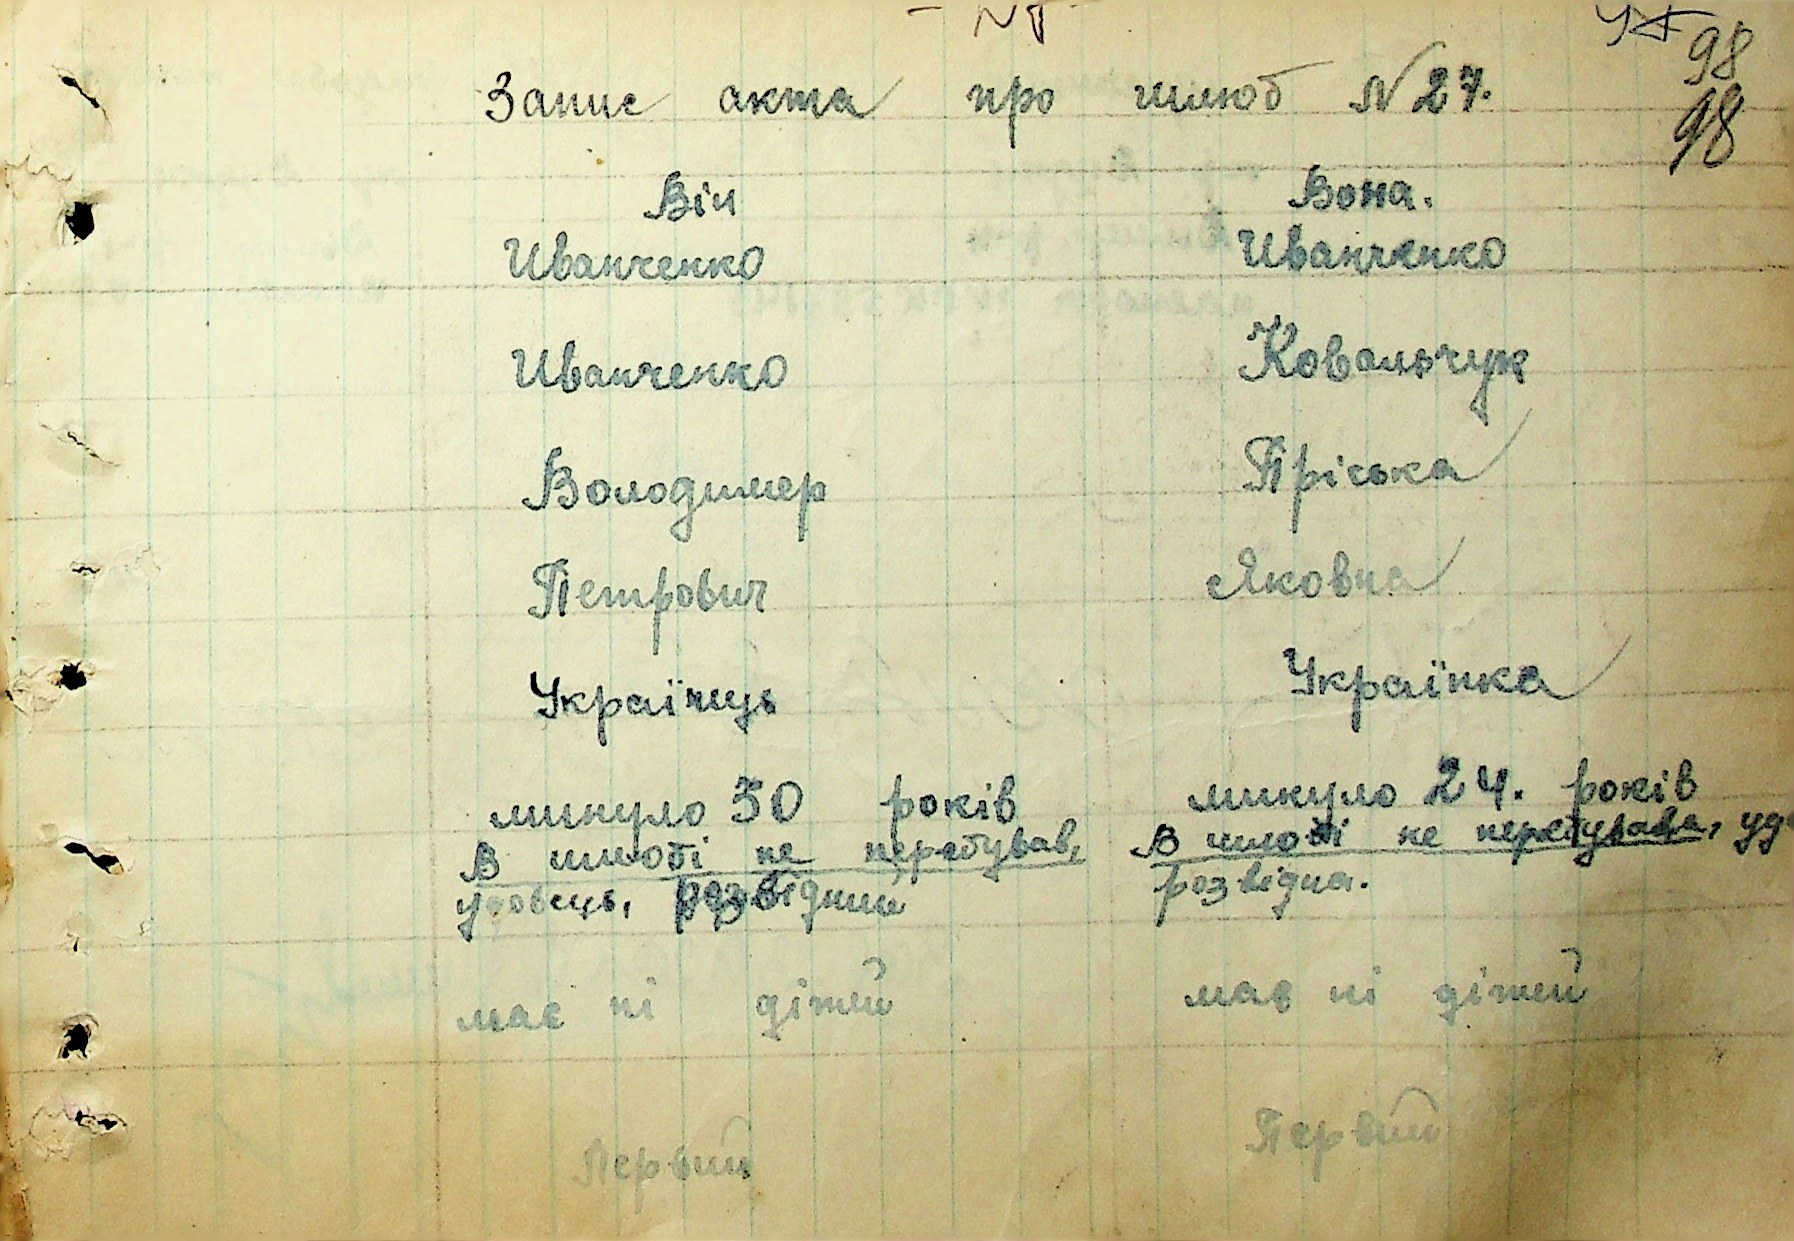 98
Запис акта про шлюб N 27.
98
Він Вона.
Иванченко Иванченко
Иванченко Ковальчук
Володимер Пріська
Петрович Яковна
Українець Українка
минуло 30 років минуло 24. років
В шлюбі не перебував, В шлюбі не перебувала, удо
удовець, розвідний розвідна.
має ні дітей має ні дітей
Первий Первий